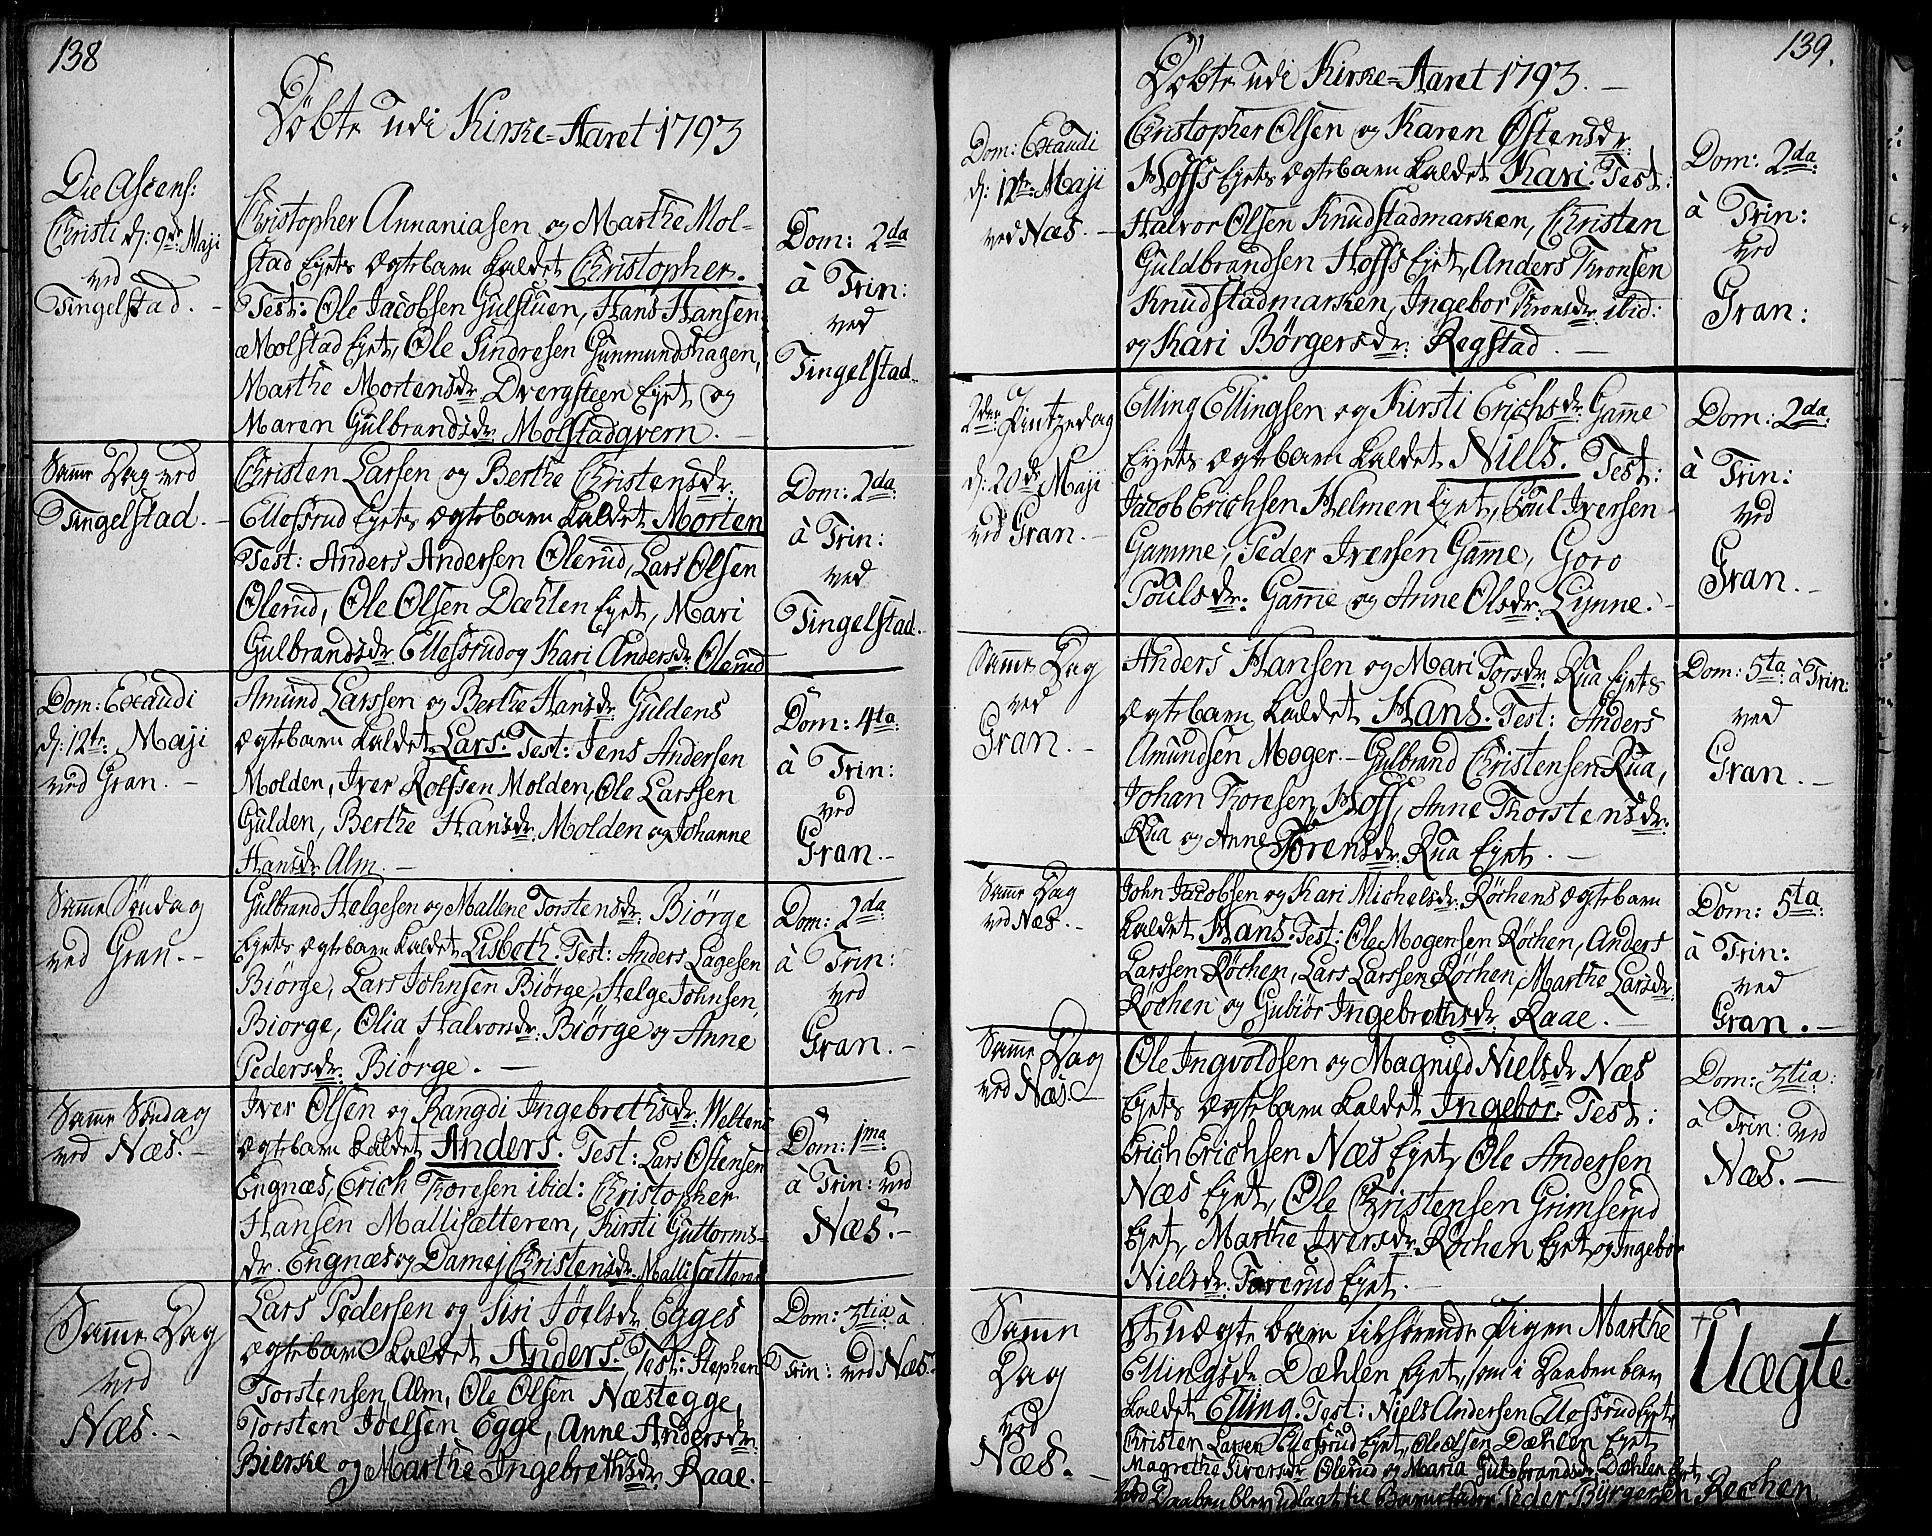 138
Døbte udi Kirke=Aaret 1793
Die Ascens:
Christi d: 9de Maji
ved
Tingelstad.
Christopher Annaniasen og Marthe Mol-
stad Eyets Ægtebarn kaldet Christopher.
Test: Ole Jacobsen Gulstuen, Hans Hansen
Molstad Eyet, Ole Sindresen Gunmundshagen,
Marthe Mortensdr: Dvergsteen Eyet og
Maren Gulbrandsdr: Molstadqvern.
Dom: 2da
à Trin:
ved
Tingelstad.
Samme Dag ved
Tingelstad.
Christen Larsen og Berthe Christensdr:
Ellofsrud Eyets Ægtebarn kaldet Morten
Test: Anders Andersen Olerud, Lars Olsen
Olerud, Ole Olsen Dæhlen Eyet, Mari
Gulbrandsdr: Ellefsrud og Kari Andersdr: Olerud
Dom: 2da:
à Trin:
ved
Tingelstad.
Dom: Exaudi
d: 12te Maji
ved Gran.
Amund Larssen og Berthe Hansdr: Guldens
Ægtebarn kaldet Lars. Test: Jens Andersen
Molden, Iver Rolfsen Molden, Ole Larssen
Gulden, Berthe Hansdr: Molden og Johanne
Hansdr: Alm.
Dom: 4ta:
à Trin:
ved
Gran.
Samme Søndag
ved Gran.
Gulbrand Helgesen og Mallene Torstensdr: Biørge
Eyets Ægtebarn kaldet Lisbeth. Test: Anders Lagesen
Biørge, Lars Johnsen Biørge, Helge Johnsen
Biorge, Olia Halvorsdr: Biørge og Anne
Pedersdr: Biørge.
Dom: 2da:
à Trin:
ved
Gran.
Samme Søndag
ved Næs.
Iver Olsen og Rangdi Ingebrethsdr: Weltens
Ægtebarn kaldet Anders. Test: Lars Ostensen
Engnæs, Erich Thoresen ibid: Christopher
Hansen Mallisætteren, Kirsti Guttorms-
dr: Engnæs og Damej Christensdr: Mallisætteren
Dom: 1ma:
à Trin: ved
Næs.
Samme Dag
ved
Næs.
Lars Pedersen og Sisi Jøelsdr: Egges
Ægtebarn kaldet Anders. Test: Stephen
Torstensen Alm, Ole Olsen Næstegge,
Torsten Jøelsen Egge, Anne Andersdr:
Bierke og Marthe Ingebrethsdr: Raae.
Dom: 3tia à
Trin: ved Næs.
139.
Døbte udi Kirke=Aaret 1793.
Dom: Exaudi
d: 12te Maji
ved Næs.
Christopher Olsen og Karen Østensdr:
Hoffs Eyets Ægtebarn kaldet Kari. Test:
Halvor Olsen Knudstadmarken, Christen
Guldbrandsen Hoffs Eyet, Anders Thronsen
Knudstadmarken, Ingebor Thronsdr: ibid:
og Kari Børgersdr: Regstad.
Dom: 2da
à Trin:
ved
Gran:
2den Pintzedag
d: 20de Maji
ved Gran.
Elling Ellingsen og Kirsti Erichsdr: Gamme
Eyets Ægtebarn kaldet Niels. Test:
Jacob Erichsen Helmen Eyet, Poul Iversen
Gamme, Peder Iversen Gamme, Goro
Poulsdr: Gamme og Anne Olsdr: Lynne.
Dom: 2da:
à Trin:
ved
Gran.
Samme Dag
ved
Gran.
Anders Hansen og Mari Torsdr: Rua Eyets
Ægtebarn kaldet Hans. Test: Anders
Amundsen Moger. Gulbrand Christensen Rua,
Johan Thoresen Hoff, Anne Thorstensdr:
Rua og Anne Torensdr: Rua Eyet.
Dom: 5ta: à Trin:
ved
Gran.
Samme Dag
ved Næs.
John Jacobsen og Kari Michelsdr: Røchens Ægtebarn
kaldet Hans. Test: Ole Mogensen Røchen, Anders
Larssen Røchen, Lars Larssen Røchen, Marthe Larsdr:
Røchen og Gubiør Ingebrethsdr: Raae.
Dom: 5ta:
à Trin:
ved
Gran.
Samme Dag
ved Næs.
Ole Ingvoldsen og Magnild Nielsdr: Næs
Eyets Ægtebarn kaldet Ingebor. Test:
Erich Erichsen Næs Eyet, Ole Andersen
Næs Eyet, Ole Christensen Grimserud
Eyet, Marthe Iversdr: Røchen Eyet, og Ingebor
Nielsdr: Eyet.
Dom: 3tia:
à Trin: ved
Næs.
Samme
Dag
ved
Næs.
Et Uægte barn tilhørende Pigen Marthe
Ellingsdr: Dæhlen Eyet, som i Daaben blev
kaldet Elling. Test: Niels Andersen Ellefsrud Eyet
Christen Larsen Ellofsrud Eyet, Ole Olsen Dæhlen Eyet
Magrethe Siversdr: Olerud og Maria Guldbrandsdr: Dæhlen Eyet
Ved Daaben blev udlagt til Barnefader Peder Byrgersen Røchen
Uægte.